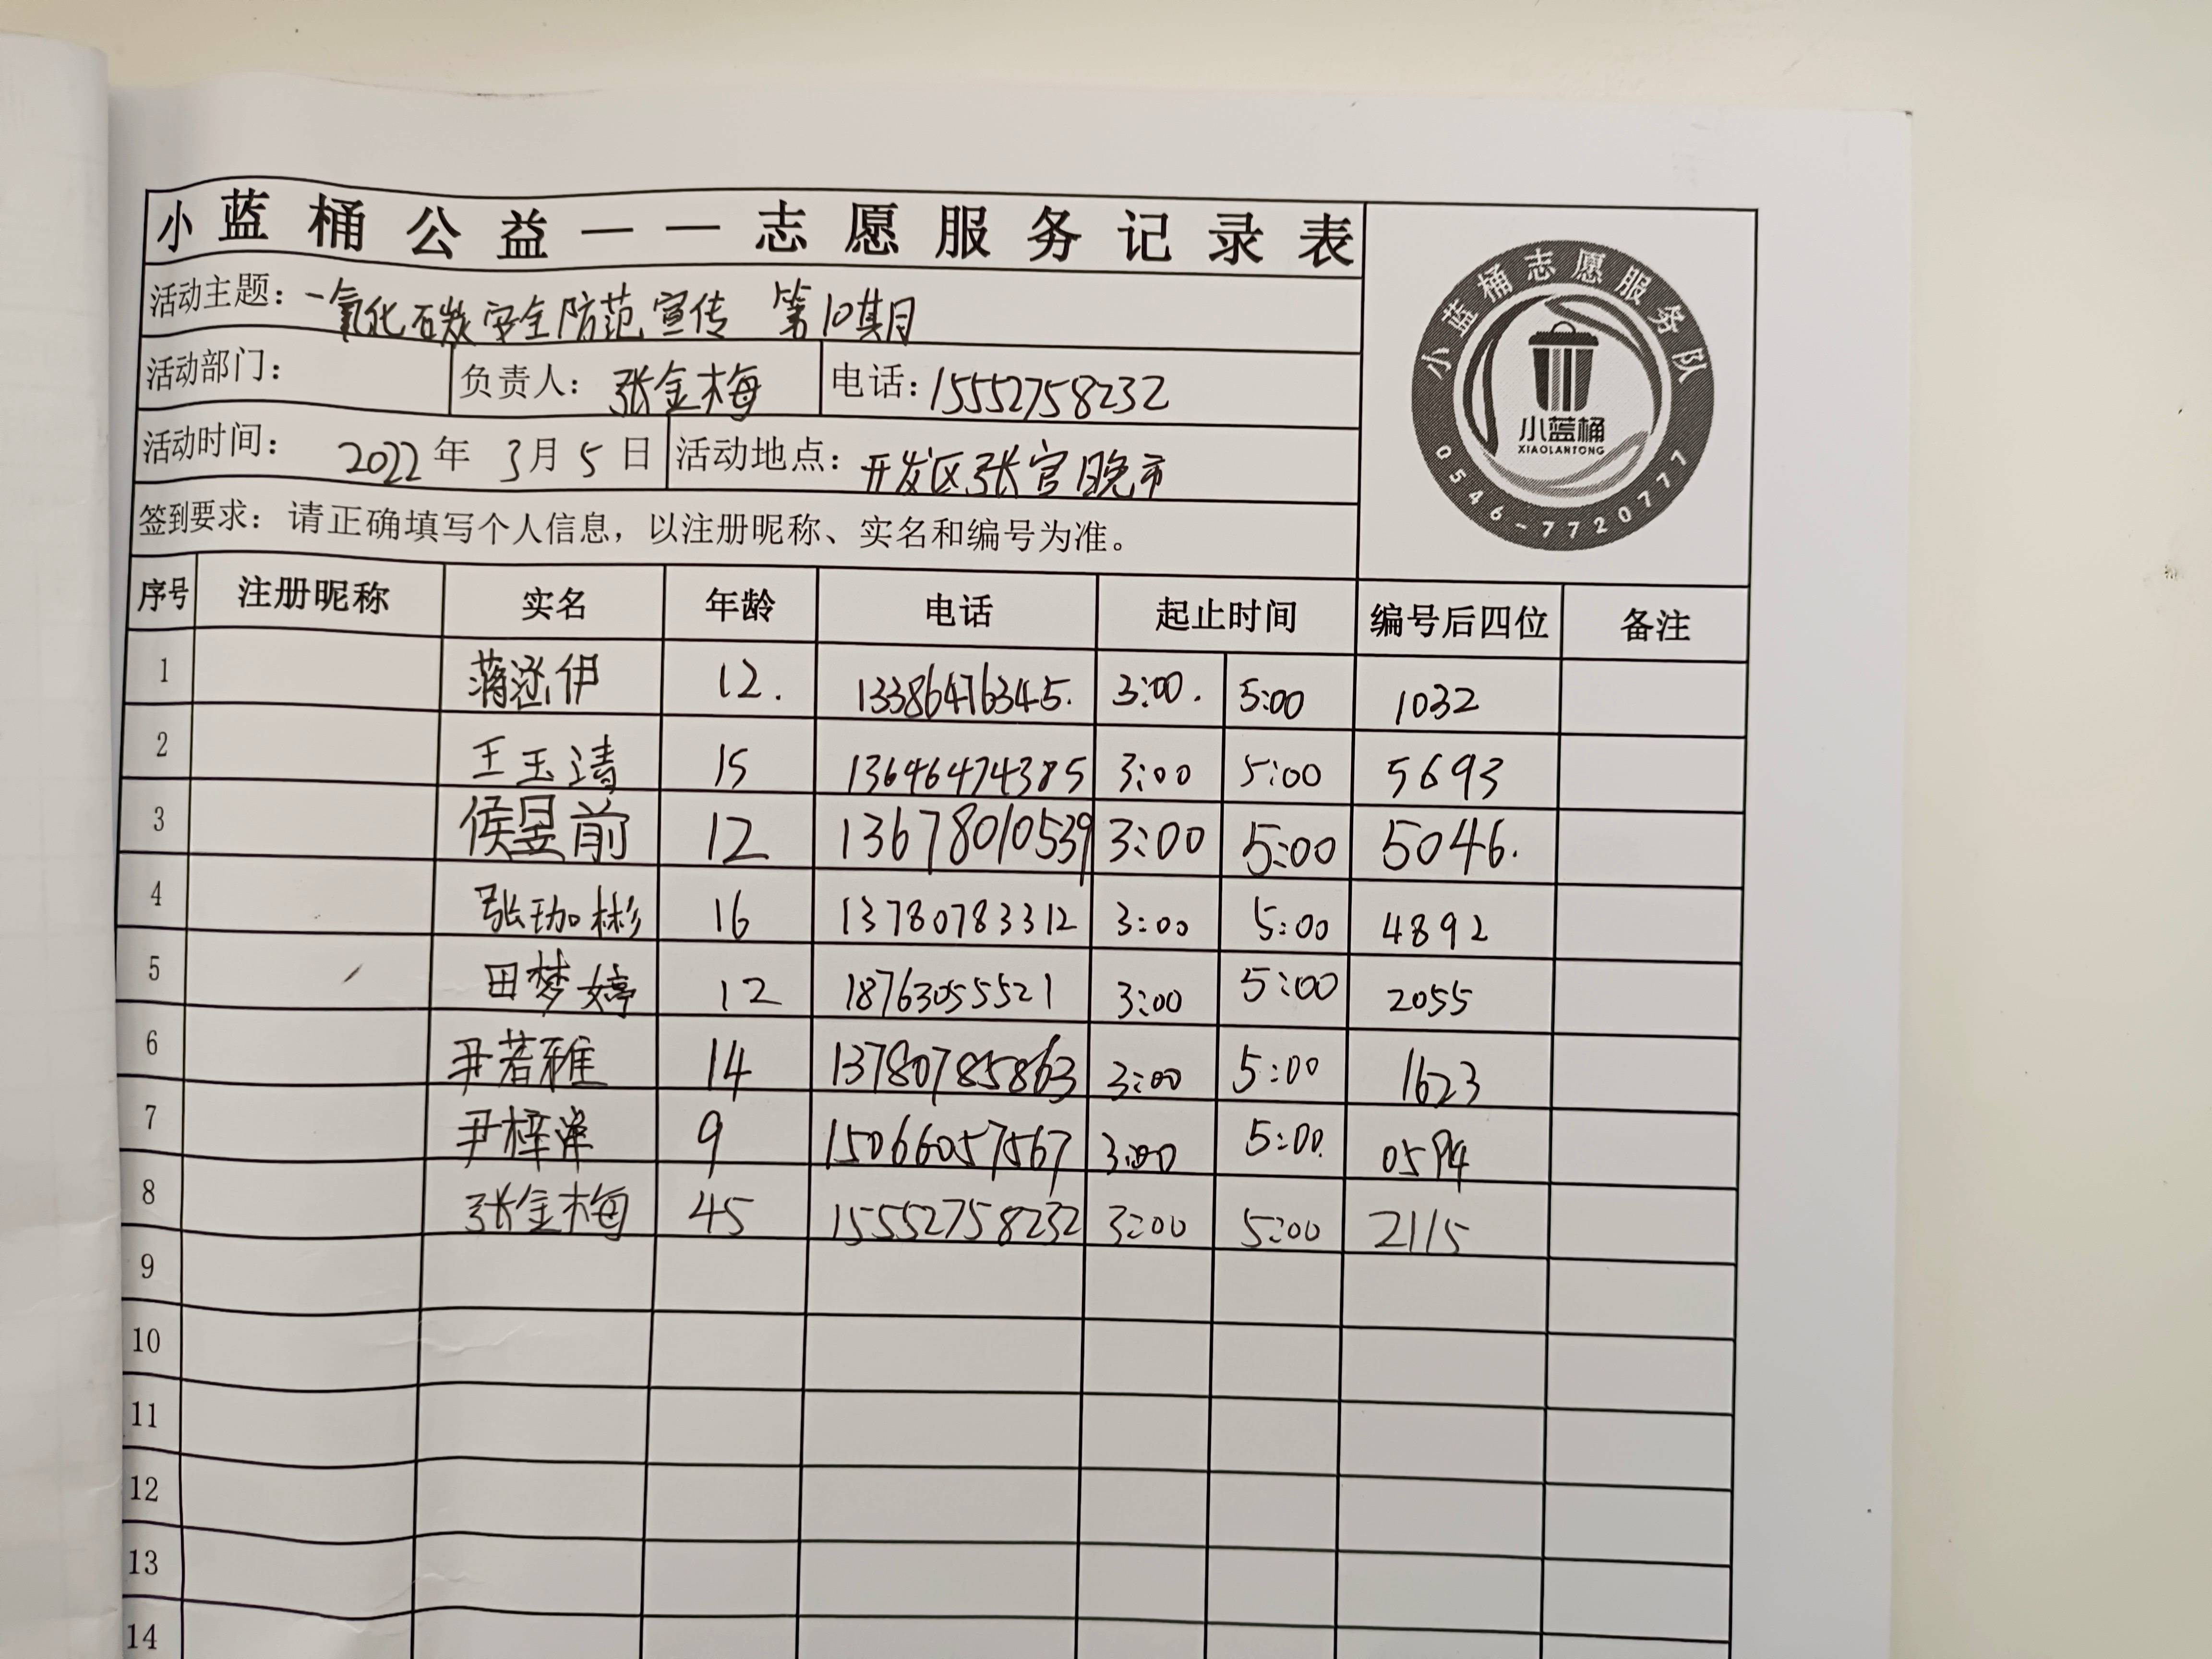 小蓝桶公益——志愿服务记录表
活动主题：一氧化石炭安全防范宣传 第10期
活动部门： 负责人：张金梅 电话：15552758232
活动时间：2022年3月5日 活动地点：开发区张官晚市
签到要求：请正确填写个人信息，以注册昵称、实名和编号为准。
小蓝桶志愿服务队
小蓝桶
XIAOLANTONG
0546-7720777
序号 注册昵称 实名 年龄 电话 起止时间 编号后四位 备注
1 蒋涵伊 12. 13386476345. 3:00. 5:00 1032
2 王玉清 15 13646474385 3:00 5:00 5693
3 侯昱前 12 13678010539 3:00 5:00 5046.
4 张珈彬 16 13780783312 3:00 5:00 4892
5 田梦婷 12 18763055521 3:00 5:00 2055
6 尹若雅 14 13780785863 3:00 5:00 1623
7 尹梓泽 9 15066057567 3:00 5:00. 0594
8 张金梅 45 15552758232 3:00 5:00 2115
9
10
11
12
13
14